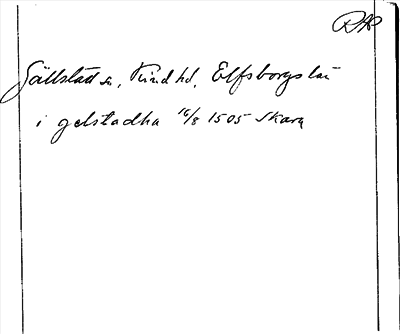 RAP
Gällstad sn, Kind hd, Elfsborgs län
i gelstadha 16/8 1505 Skara